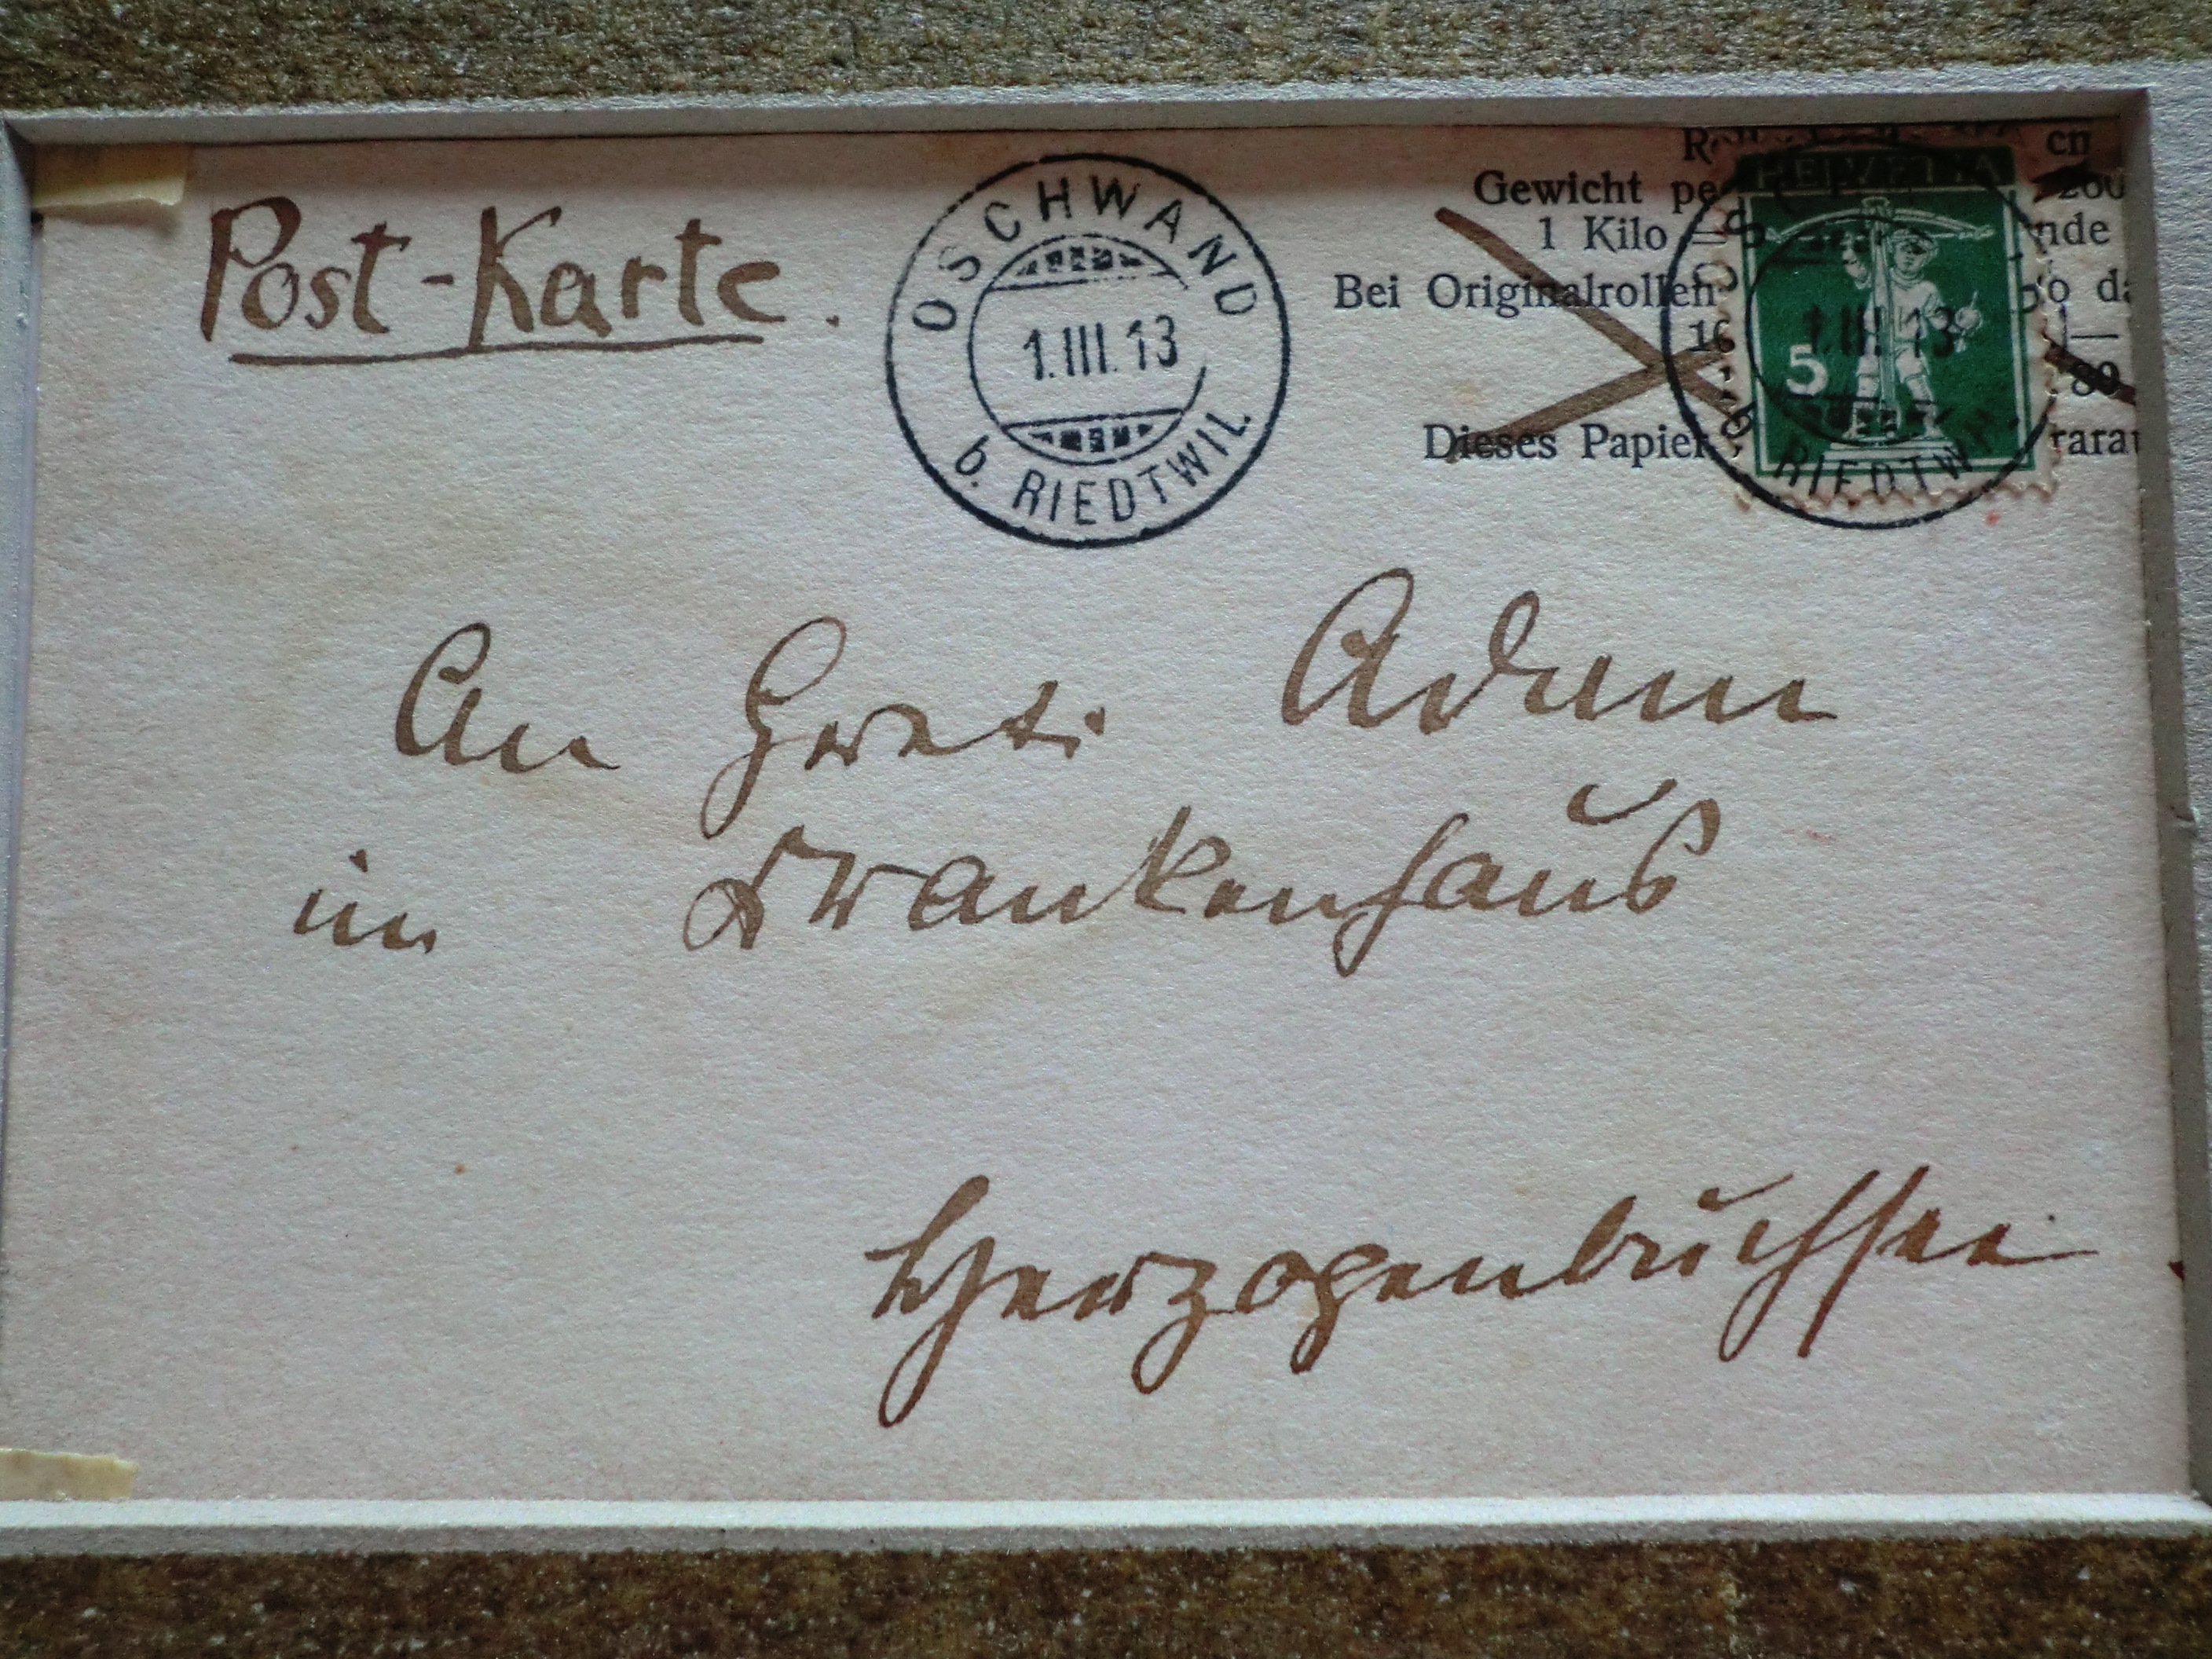 Post-Karte.
OSCHWAND
1.III.13
b. RIEDTWIL
Gewicht
1 Kilo =
Bei Originalrollen
Dieses Papier
HELVETIA
5
1.III.13
b. RIEDTWIL
An Gret. Adam
im Krankenhaus
Herzogenbuchsee